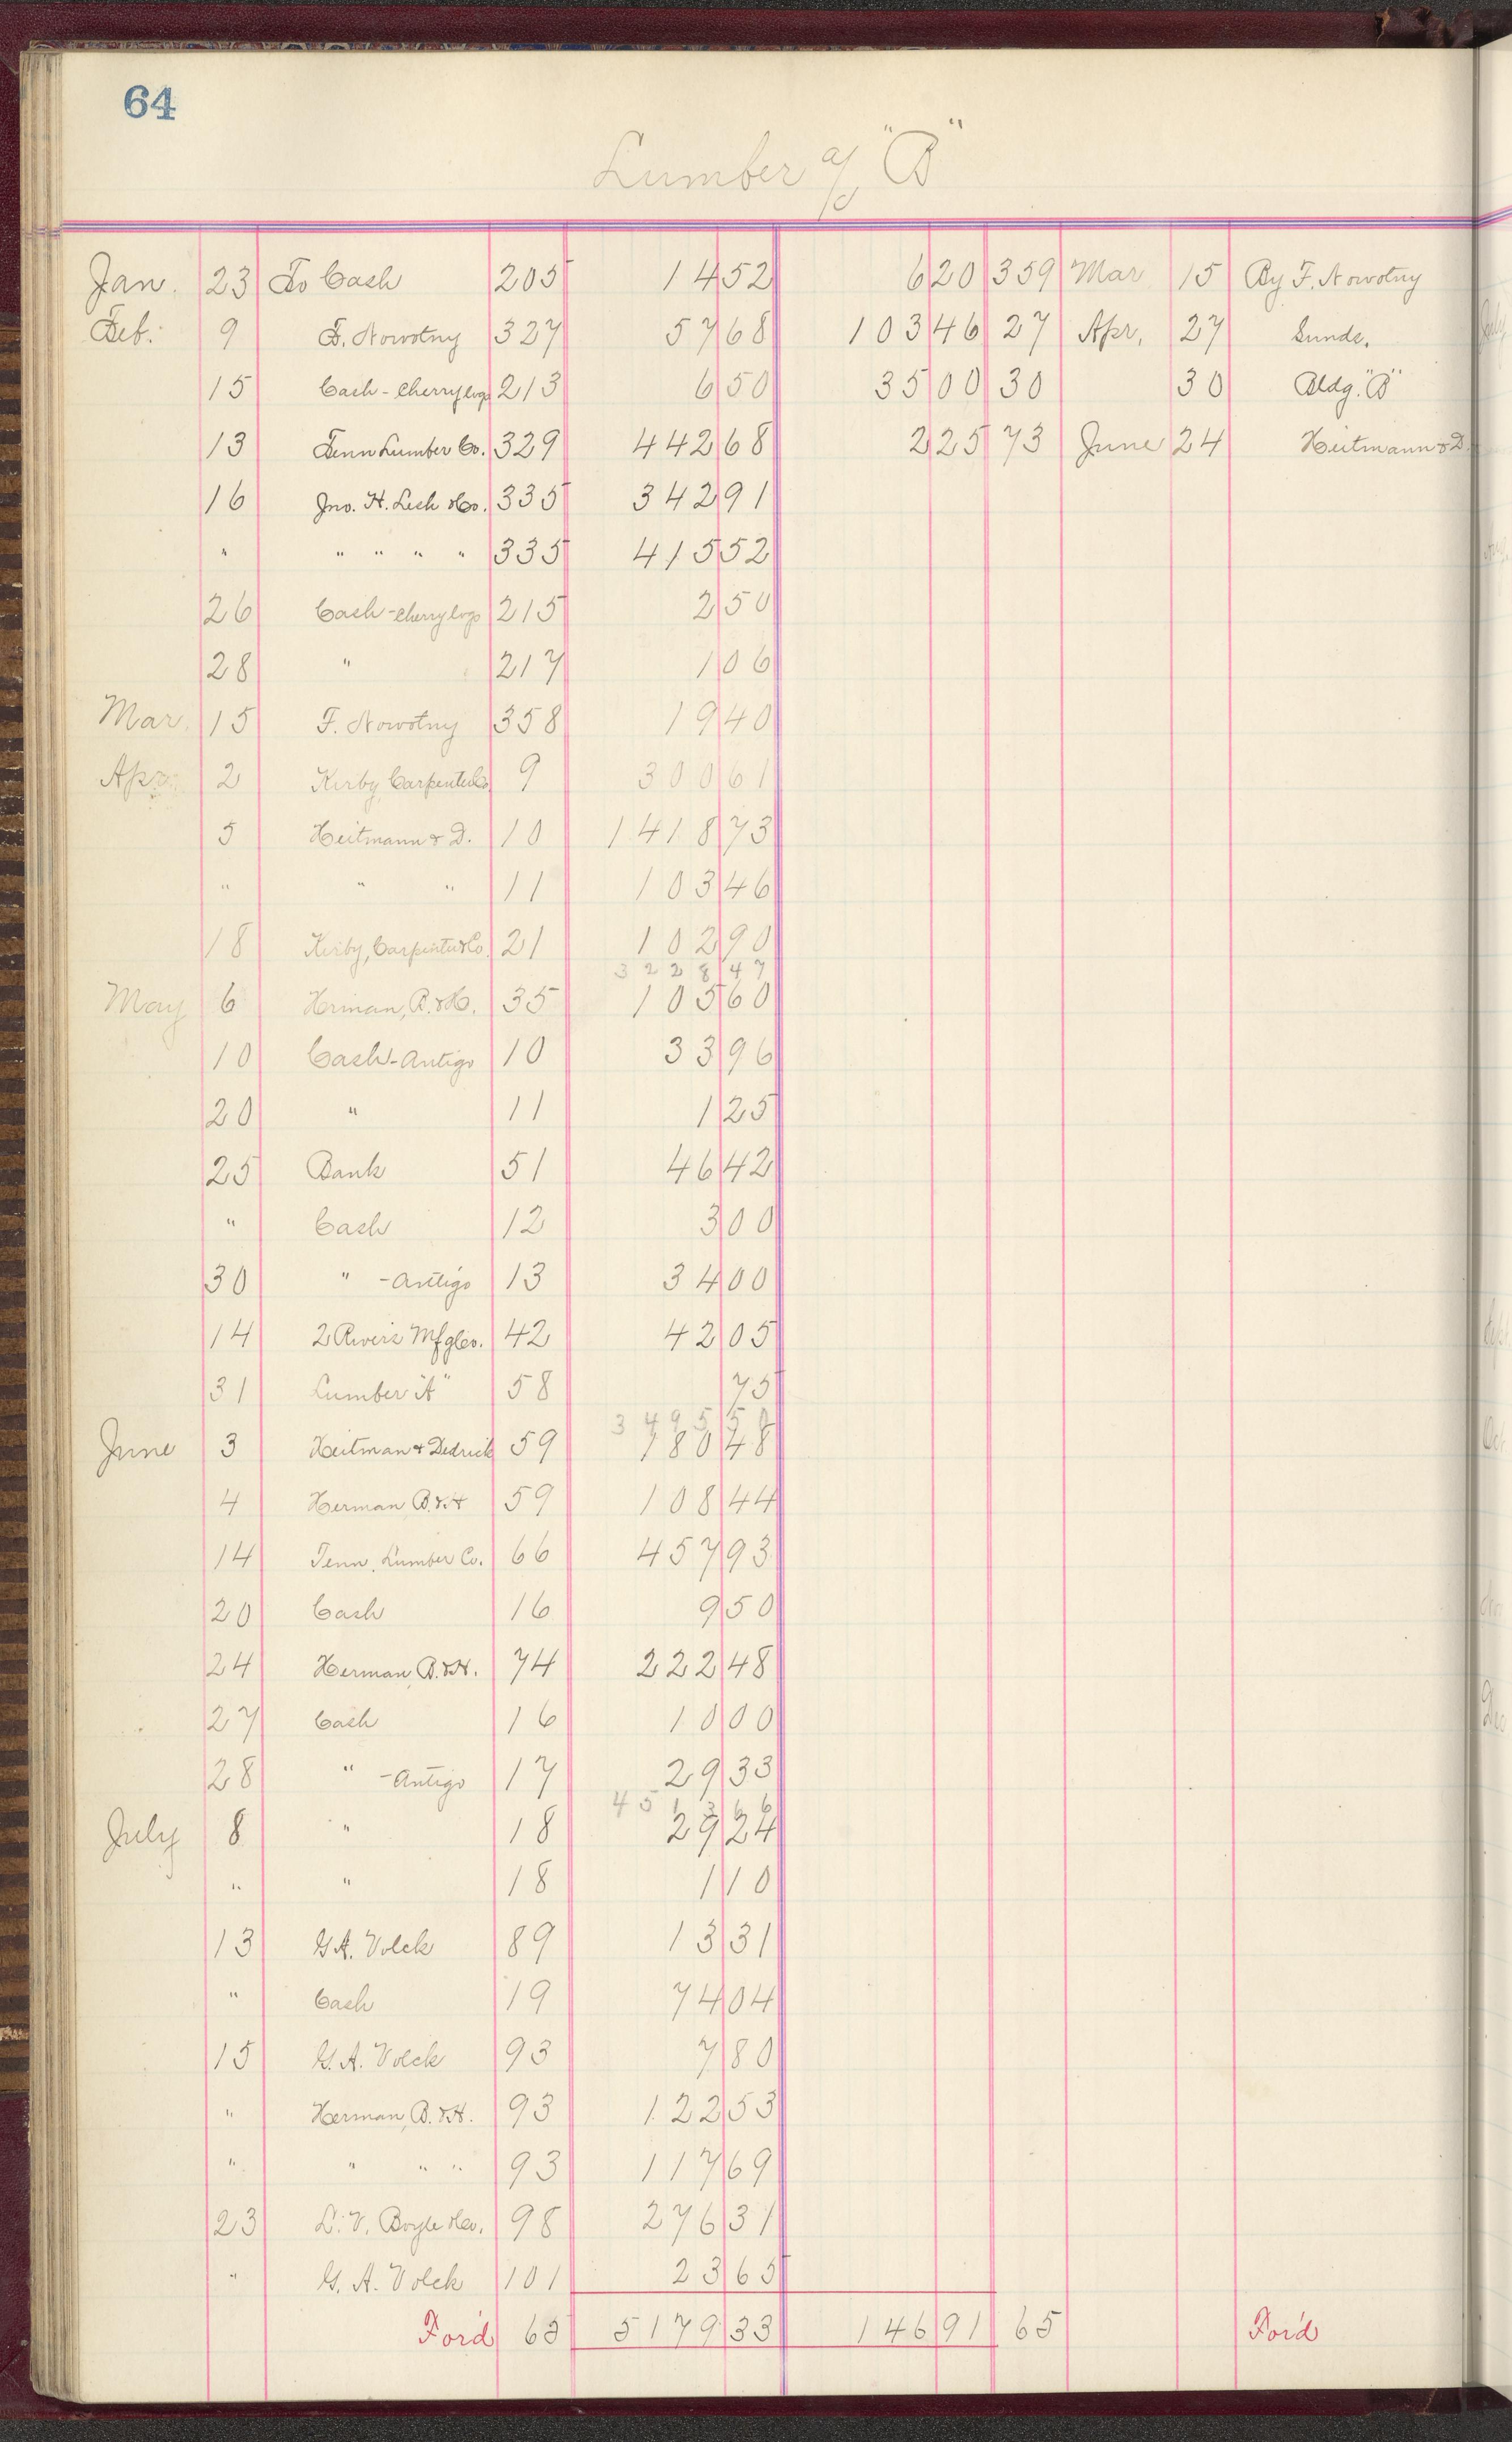 64
Lumber a/c "B"
Jan. 23 To Cash 205 14 52 6 20 359 Mar 15 By F. Nowotny
Feb. 9 F. Nowotny 327 57 68 103 46 27 Apr. 27 Sunds.
15 Cash - Cherry logs 213 6 50 35 00 30 30 Bldg. "B"
13 Tenn Lumber Co. 329 442 68 2 25 73 June 24 Heitmann & D.
16 Jno. H. Lesh & Co. 335 342 91
" " " " " 335 415 52
26 Cash - Cherry logs 215 2 50
28 " 217 1 06
Mar. 15 F. Nowotny 358 19 40
Apr. 2 Kirby Carpenter Co 9 300 61
5 Heitmann & D. 10 1418 73
" " " 11 103 46
18 Kirby, Carpenter & Co. 21 102 90
3228 47
May 6 Herman, B. & H. 35 105 60
10 Cash - Antigo 10 33 96
20 " 11 1 25
25 Bank 51 46 42
" Cash 12 3 00
30 " - Antigo 13 34 00
14 2 Rivers Mfg Co. 42 42 05
31 Lumber "A" 58 75
3495 50
June 3 Heitman & Dedrick 59 180 48
4 Herman B. & H 59 108 44
14 Tenn. Lumber Co. 66 457 93
20 Cash 16 9 50
24 Herman, B. & H. 74 222 48
27 Cash 16 10 00
28 " - Antigo 17 29 33
4513 66
July 8 " 18 29 24
" " 18 1 10
13 G. A. Volck 89 13 31
" Cash 19 74 04
15 G. A. Volck 93 7 80
" Herman, B. & H. 93 122 53
" " " " 93 117 69
23 L. V. Boyle & Co. 98 276 31
" G. A. Volck 101 23 65
For'd 65 5179 33 146 91 65 For'd